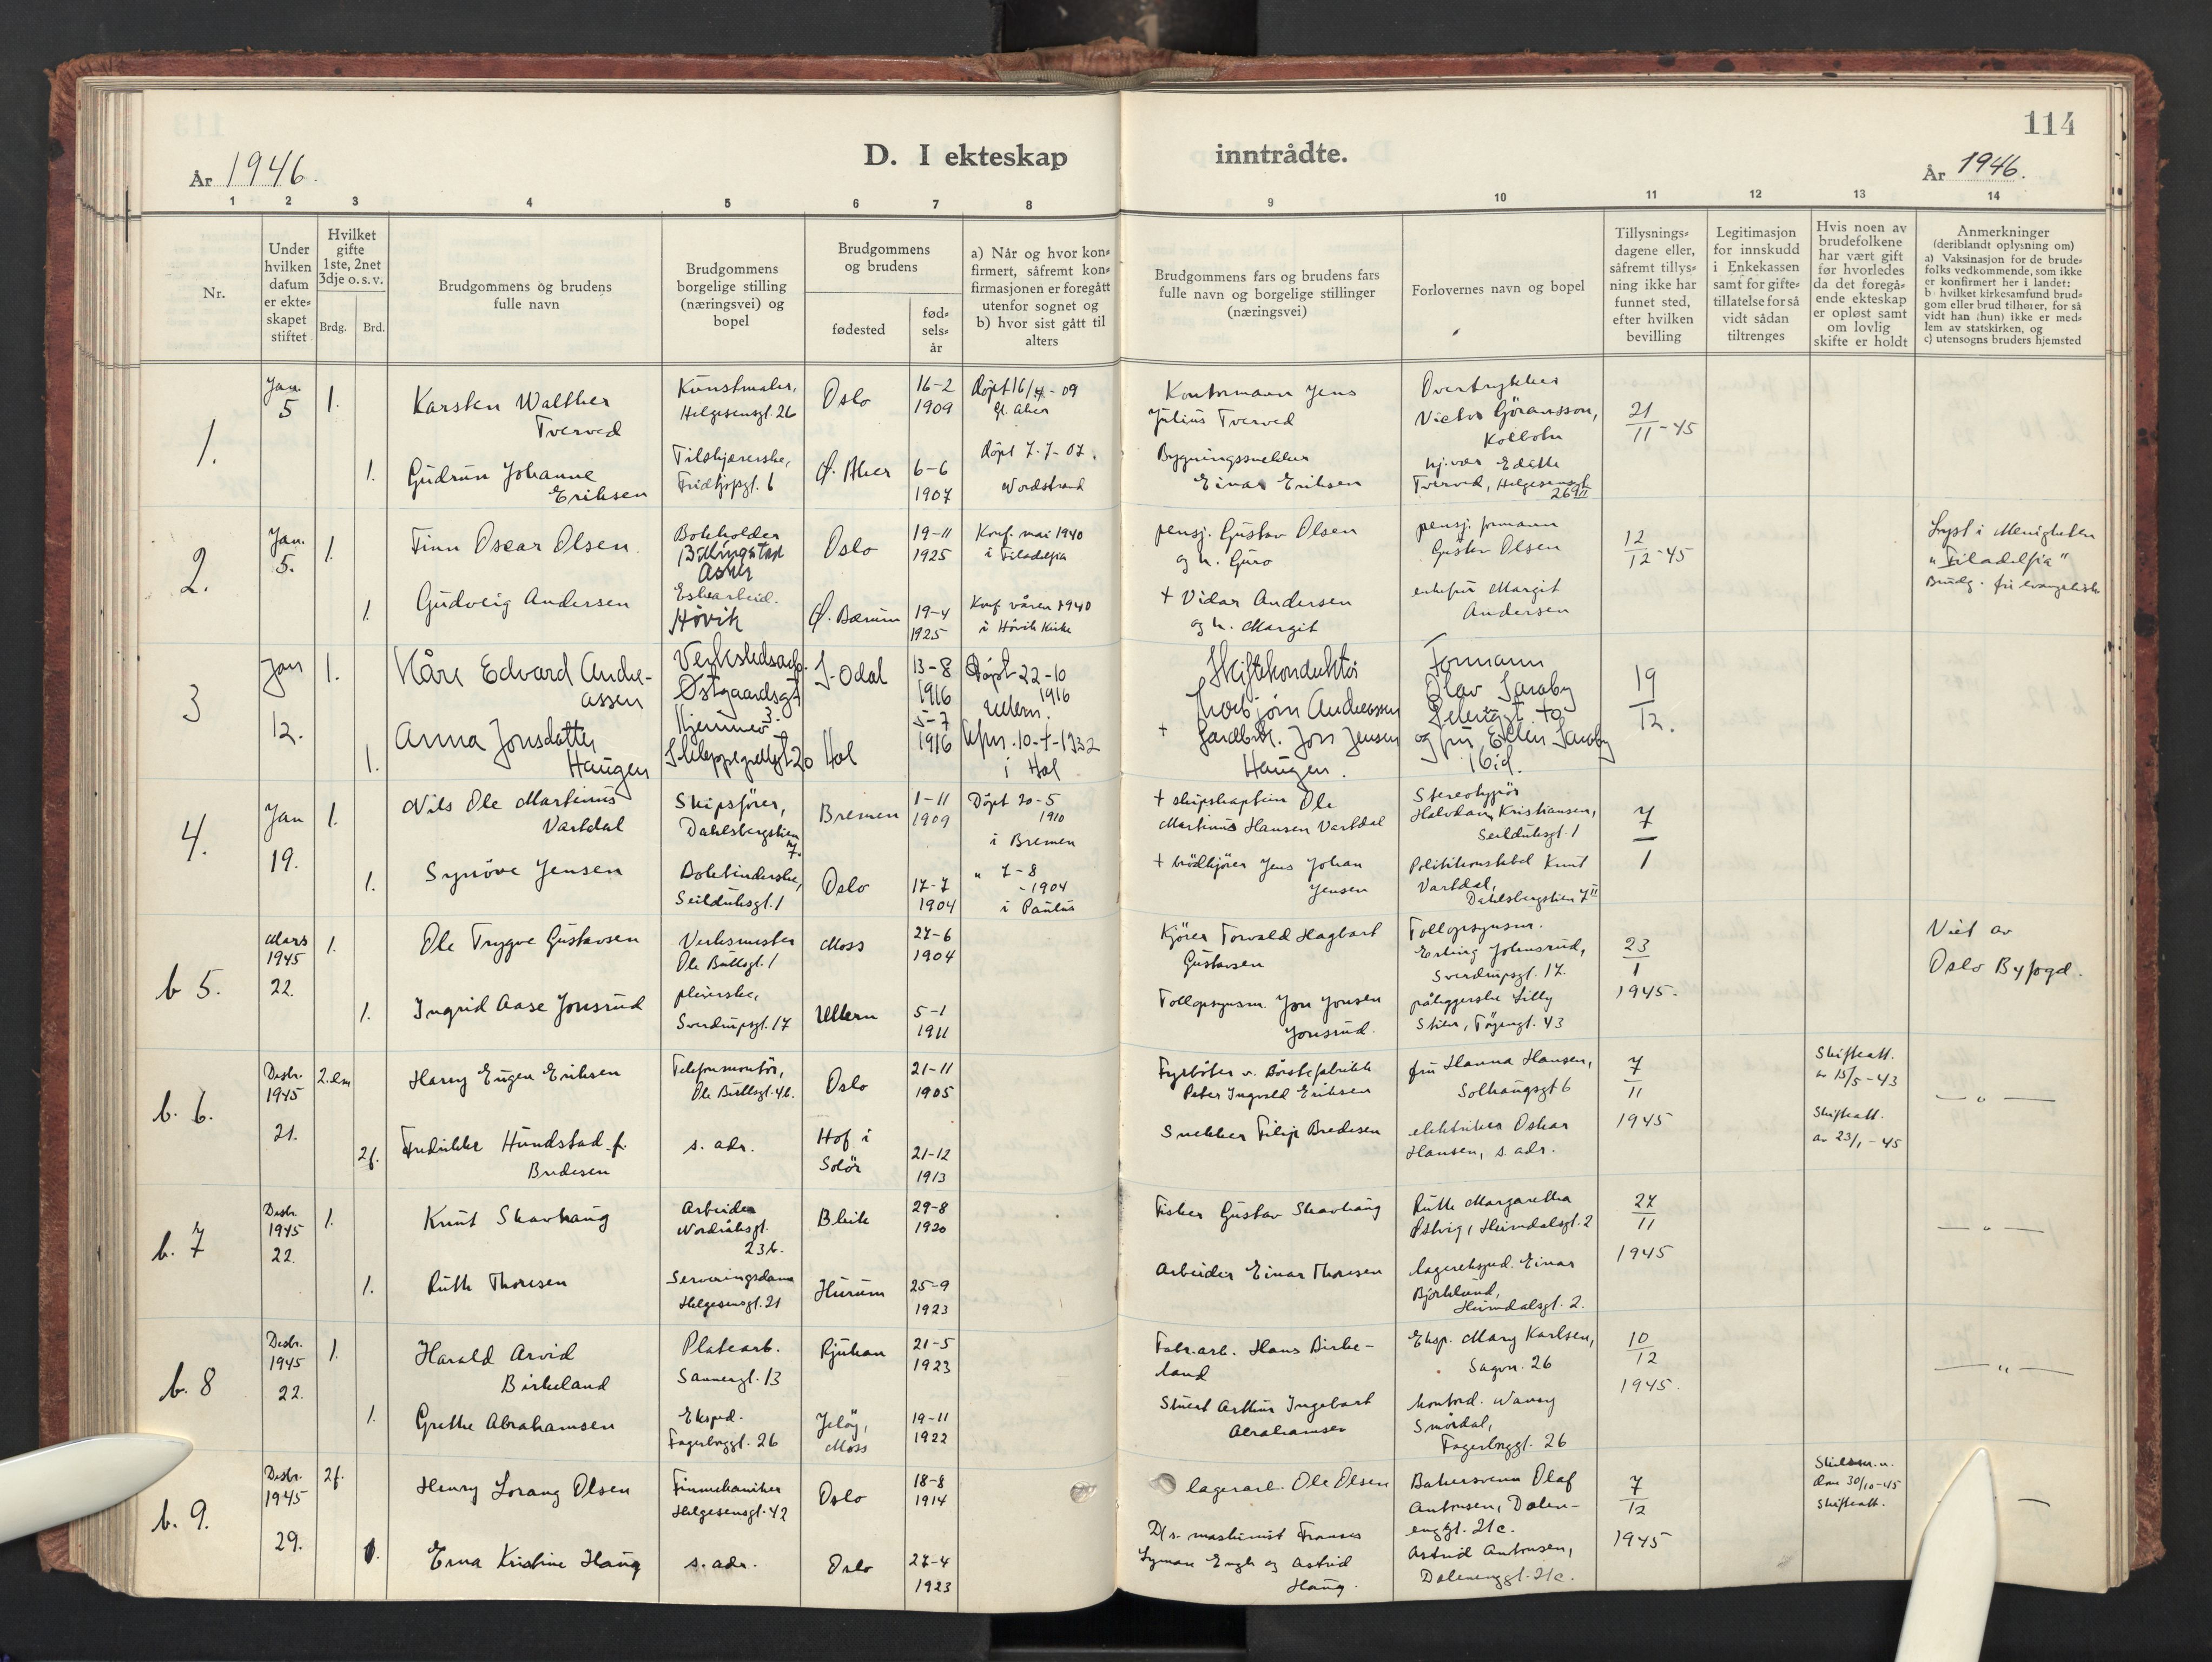 114
D. I ekteskap inntrådte.
År 1946.
År 1946.
1 2 3 4 5 6 7 8 9 10 11 12 13 14
Nr.
Under hvilken datum er ekte-skapet stiftet
Hvilket gifte 1ste, 2net 3dje o. s. v.
Brdg. Brd.
Brudgommens og brudens fulle navn
Brudgommens borgelige stilling (næringsvei) og bopel
Brudgommens og brudens
fødested
fød-sels-år
a) Når og hvor kon-firmert, såfremt kon-firmasjonen er foregått utenfor sognet og b) hvor sist gått til alters
Brudgommens fars og brudens fars fulle navn og borgelige stillinger (næringsvei)
Forlovernes navn og bopel
Tillysnings-dagene eller, såfremt tillys-ning ikke har funnet sted, efter hvilken bevilling
Legitimasjon for innskudd i Enkekassen samt for gifte-tillatelse for så vidt sådan tiltrenges
Hvis noen av brudefolkene har vært gift før hvorledes da det foregå-ende ekteskap er opløst samt om lovlig skifte er holdt
Anmerkninger (deriblandt oplysning om) a) Vaksinasjon for de brude-folks vedkommende, som ikke er konfirmert her i landet: b) hvilket kirkesamfund brud-gom eller brud tilhører, for så vidt han (hun) ikke er med-lem av statskirken, og c) utensogns bruders hjemsted
1.
Jan. 5
1.
Karsten Walther Tverved
Kunstmaler, Helgesensgt. 26
Oslo
16-2 1909
Døpt 16/4-09 Gl. Aker
Kontormann Jens Julius Tverved
Overtrykker Victor Göransson, Kolbotn
21/11-45
1.
Gudrun Johanne Eriksen
Tilskjærerske, Fridtjofsgt. 6
Ø. Aker
6-6 1907
Døpt 7-7-07. Nordstrand
Bygningssnekker Einar Eriksen
hj.vær Edithe Tverved, Helgesensgt. 26 II
2.
Jan. 5.
1.
Finn Oscar Olsen
Bokholder Billingstad Asker
Oslo
19-11 1925
Konf. mai 1940 i Filadelfia
pensj. Gustav Olsen og h. Guro
pensj. formann Gustav Olsen
12/12-45
Lyst i Menigheten "Filadelfia" Brudg. fri evangelisk
1.
Gudveig Andersen
Eskearbeid. Høvik
Ø. Bærum
19-4 1925
Konf våren 1940 i Høvik Kirke
+ Vidar Andersen og h. Margit
enkefru Margit Andersen
3
Jan 12.
1.
Kåre Edvard Andre-assen
Verkstedsarb. Østgaardsgt 3.
S. Odal
13-8 1916
Døpt 22-10 1916 Ullern.
Skiftekonduktør Thorbjørn Andreassen
Formann Olav Saraby
19/12.
1.
Anna Jonsdatter Haugen
Hjemmev. Schleppegrellsgt 20
Hol
5-7 1916
i Hol
+ Gardbr. Jon Jensen Haugen.
og fru Ellen Saraby Ibid.
4.
Jan 19.
1.
Nils Ole Martinus Vartdal
Skipsfører, Dahlsbergstien 7.
Bremen
1-11 1909
Døpt 20-5 1910 i Bremen
+ skipskaptein Ole Martinus Hansen Vartdal
Stereotypør Halvdan Kristiansen, Seilduksgt. 1
7/1
1.
Synøve Jensen
Bokbinderske, Seilduksgt. 1
Oslo
17-7 1904
" 7-8 -1904 i Paulus
+ brødkjører Jens Johan Jensen
Polititkonstabel Knut Vartdal, Dahlsbergstien 7 II
b 5.
Mars 1945 22.
1.
Ole Trygve Gustavsen
Verksmester Ole Bullsgt. 1
Moss
27-6 1904
Kjører Torvald Hagbart Gustavsen
Tollopsynsm. Erling Johnsrud, Sverdrupsgt. 17.
23/1 1945.
Viet av Oslo Byfogd.
1.
Ingrid Aase Jonsrud
pleierske, Sverdrupsgt. 17
Ullern
5-1 1911
Tollopsynsm. Jon Jonsen Jonsrud.
påleggerske Lilly Stien, Tøyengt. 43
b. 6.
Desbr. 1945 21.
2. em
Harry Eugen Eriksen
Telefonmontør, Ole Bullsgt. 4b.
Oslo
21-11 1905
Fyrbøter v. Børstefabrikk Peter Ingvald Eriksen
fru Hanna Hansen, Solhaugsgt 6
7/11 1945
Skifteatt. av 15/5-43
— " —
2f.
Fredrikke Hundstad f. Bredesen
s. adr.
Hof i Solør
21-12 1913
Snekker Filip Bredesen
elektriker Oskar Hansen, s. adr.
Skifteatt. av 23/1-45
b. 7
Desbr. 1945 22.
1.
Knut Skavhaug
Arbeider Nordråksgt. 23b.
Bleik
29-8 1920
Fisker Gustav Skavhaug
Ruth Margaretha Østvig, Heimdalsgt. 2
27/11 1945
— " —
1.
Ruth Thoresen
Serveringsdame Helgesensgt. 21
Hurum
25-9 1923
Arbeider Einar Thoresen
lagerekspd. Einar Bjørklund, Heimdalsgt. 2.
b. 8
Desbr. 1945 22.
1.
Harald Arvid Birkeland
Platearb. Sannergt. 13
Rjukan
21-5 1923
Fabr.arb. Hans Birke-land
Eksp. Mary Karlsen, Sagvn. 26
10/12 1945.
— " —
1.
Grethe Abrahamsen
Ekspd. Fagerborggt. 26
Jeløy, Moss
19-11 1922
Stuert Arthur Ingebart Abrahamsen
kontord. Wanny Smørdal, Fagerborggt. 26
b. 9.
Desbr. 1945 29.
2f.
Henry Lorang Olsen
Finmekaniker Helgesensgt. 42
Oslo
18-8 1914
lagerarb. Ole Olsen
Bakersvenn Olaf Antonsen, Dalen-enggt. 21c.
7/12 1945
30/10-45 skifteatt.
—
1.
Erna Kristine Haug
s. adr.
Oslo
27-4 1923
D/s. maskinist Frans Lyman Engh og Astrid Haug.
Astrid Antonsen, Dalenenggt. 21c.